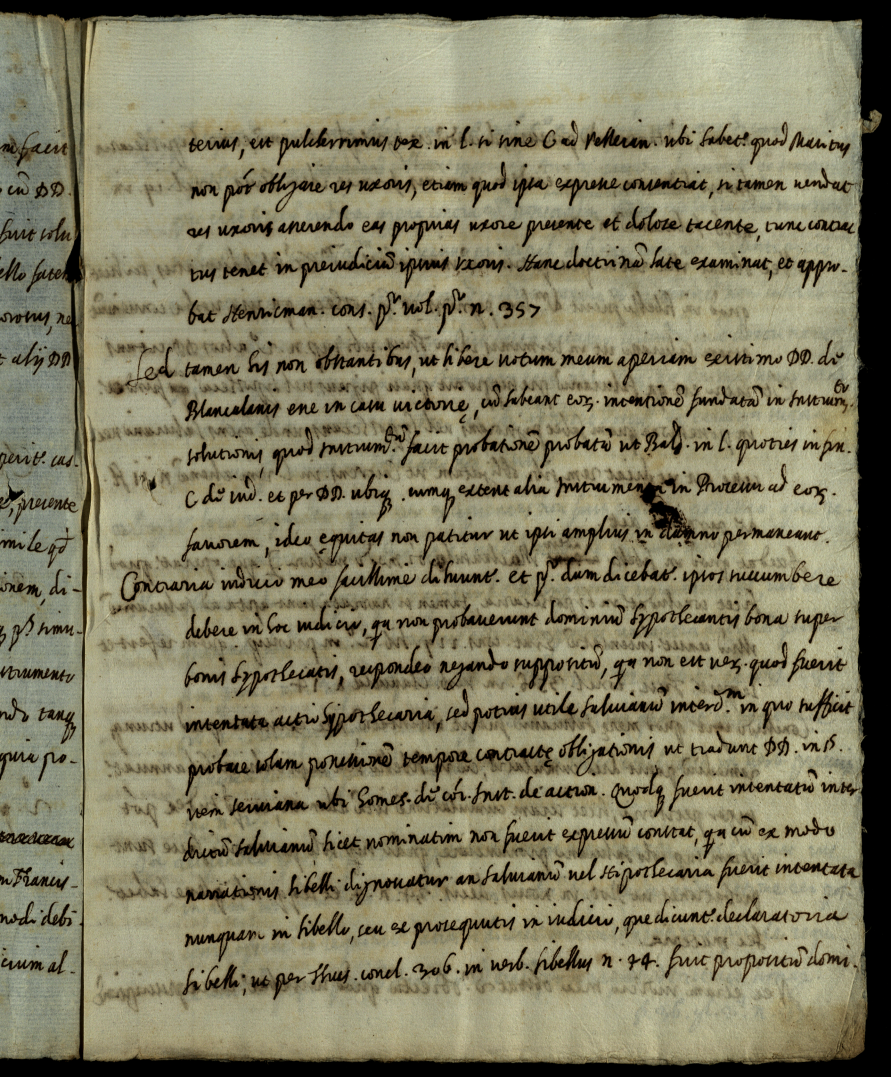 terius, est pulcherrimus tex. in l. si sine C ad Velleian. ubi habet.r quod Maritus
non põt obligare res uxoris, etiam quod ipsa expresse consentiat, si tamen vendat
res uxoris asserendo eas proprias uxore presente et dolose tacente, tunc contrac
tus tenet in preiudiciũ ipsius Uxoris. Hanc doctrinã late examinat, et appro-
bat Henricman. cons. p.º vol. p.º n. 357
Sed tamen his non obstantibus, ut libere votum meum aperiam existimo DD. de
Blancalanis esse in casu victorię, cũ habeant eoꝝ. intentionẽ fundatã in Instrum.
solutionis, quod Instrum.m facit probationẽ probatã ut Bald. in l. quoties in fin.
C de iud. et per DD. ubiq, cumq extent alia Instrumenta in Processu ad eoꝝ.
favorem, ideo ęquitas non patitur ut ipsi amplius in damno permaneant.
Contraria iudicio meo facillime diluunt.r et p.º dum dicebat.r ipsos succumbere
debere in hoc iudicio, qa non probaverunt dominiũ hypothecantis bona super
bonis hypothecatis, respondeo negando suppositũ, qa non est veꝝ. quod fuerit
intentata actio hypothecaria, sed potius utile Salvianũ interd.m in quo sufficit
probare solam possessionẽ tempore contractę obligationis ut tradunt DD. in §.
item serviana ubi Gomes. de cõi. Inst. de action. Quodq fuerit intentatũ inter
dictũ Salvianũ licet nominatim non fuerit expressũ constat, qa cũ ex modo
narrationis libelli dignoscatur an Salvianũ vel Hipothecaria fuerit intentata
nunquam in libello, seu ex prosequutis in iudicio, que dicunt.r declaratoria
libelli, ut per concl. 306. in verb. libellus n. 44. fuit propositũ domi-